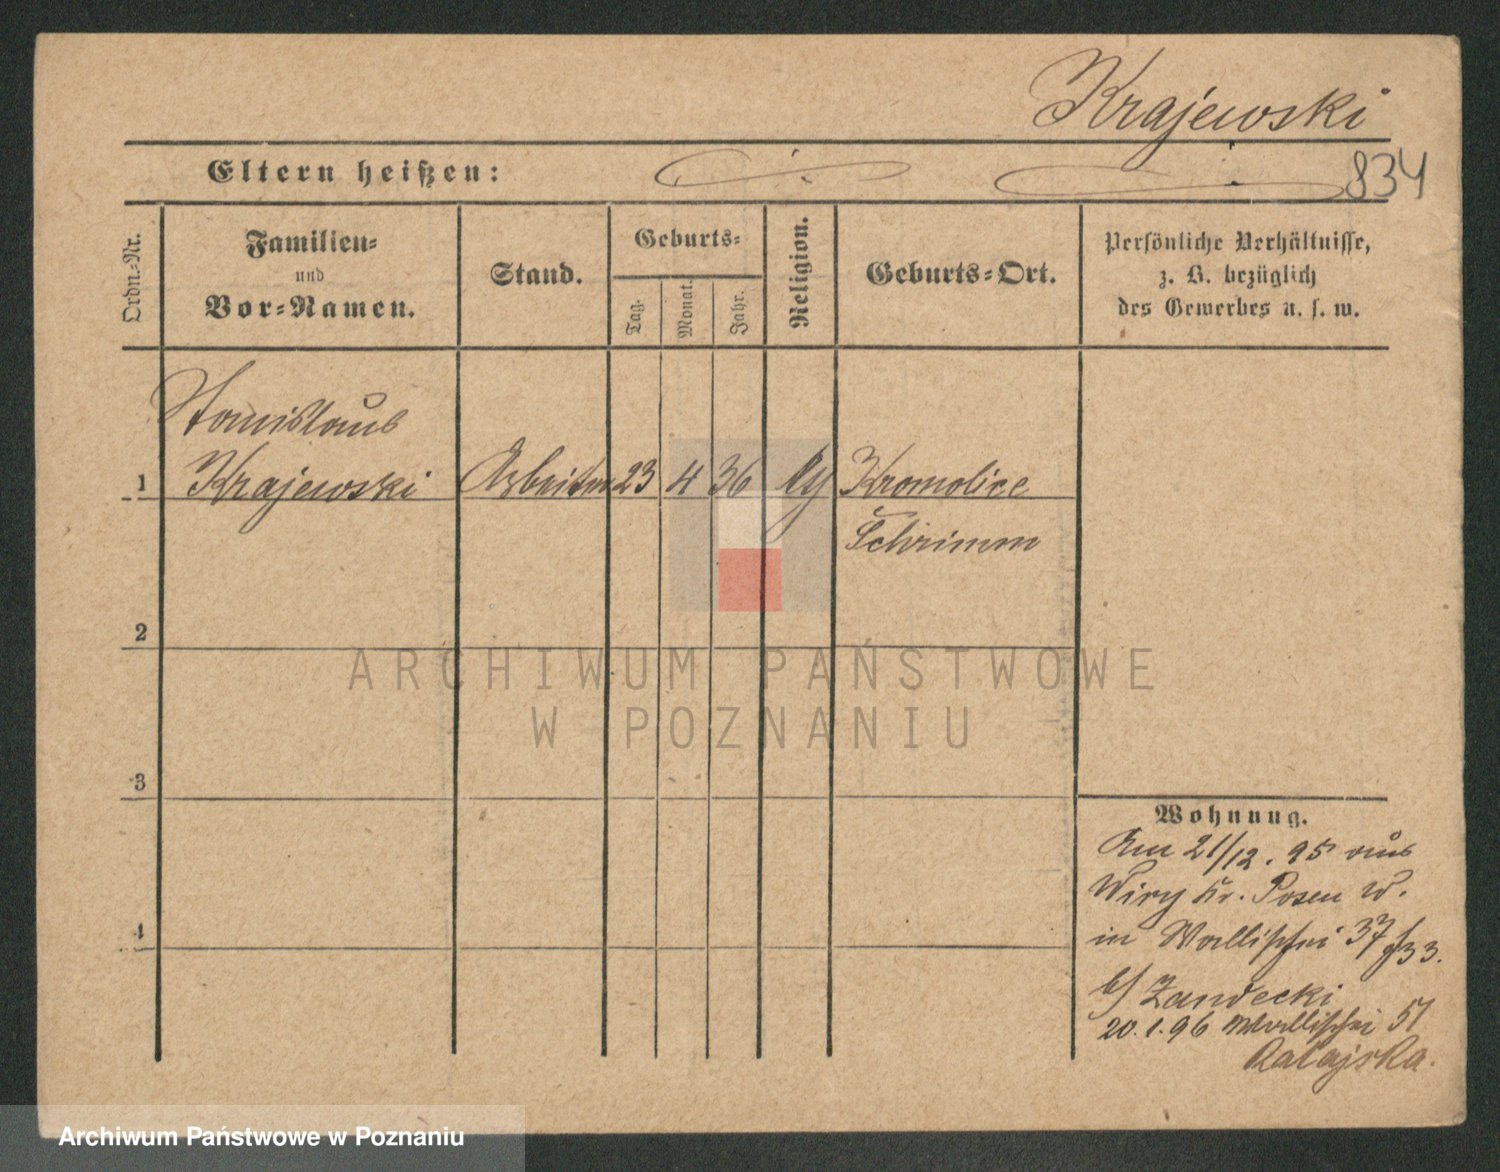 Krajewski
834
Eltern heißen:
Ordn.=Nr.
Familien=
und
Vor=Namen.
Stand.
Geburts=
Tag.
Monat.
Jahr.
Religion.
Geburts=Ort.
Persönliche Verhältnisse,
z. B. bezüglich
des Gewerbes u. s. w.
Stanislaus
1 Krajewski Arbeiter 23 4 36 Kromolice
Schrimm
2
3
4
ARCHIWUM PAŃSTWOWE
W POZNANIU
Wohnung.
Am 21/12. 95 aus
Wiry Kr. Posen W.
in Wallischei 37/33.
b/ Zandecki
20.1.96 Wallischei 51
Ratajska.
Archiwum Państwowe w Poznaniu